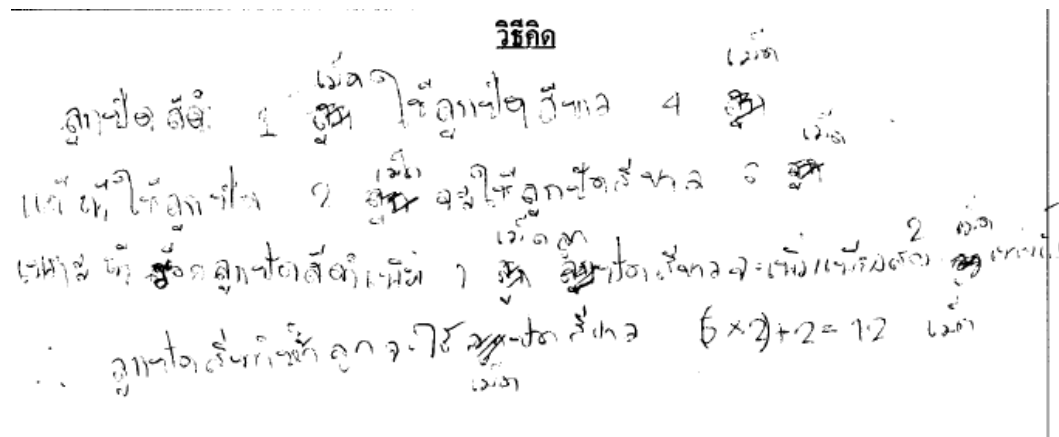 วิธีคิด
ลูกปัดสีดำ 1 เม็ด ใช้ลูกปัดสีขาว 4 เม็ด
แต่ ใช้ลูกปัด 2 เม็ด จะใช้ลูกปัดสีขาว 6 เม็ด
ลูกปัดสีดำเพิ่ม 1 เม็ด ลูกปัดสีขาวจะเพิ่มเพียง 2 เม็ด
∴ ลูกปัดสี ลูก จะใช้ลูกปัดสีขาว (5×2)+2=12 เม็ด